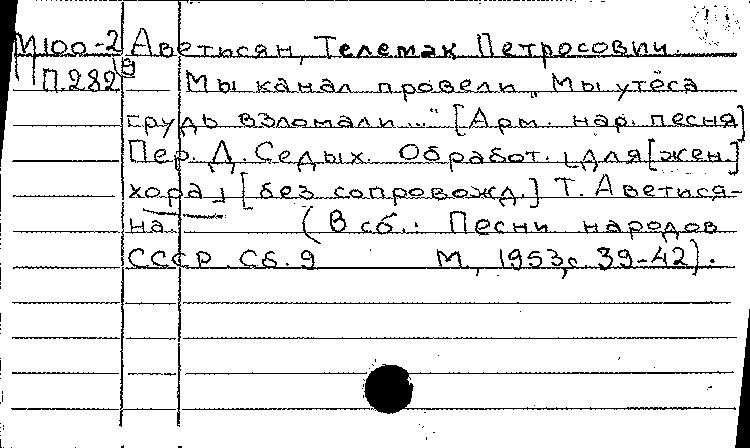 М100-2 Аветисян, Телемак Петросович.
П.282 9 Мы канал провели „Мы утёса
грудь взломали..." [Арм. нар. песня]
Пер. Д. Седых. Обработ. [для [жен.]
хора] [без сопровожд.] Т. Аветися-
на. (В сб.: Песни народов
СССР. Сб. 9 М., 1953, с. 39-42).